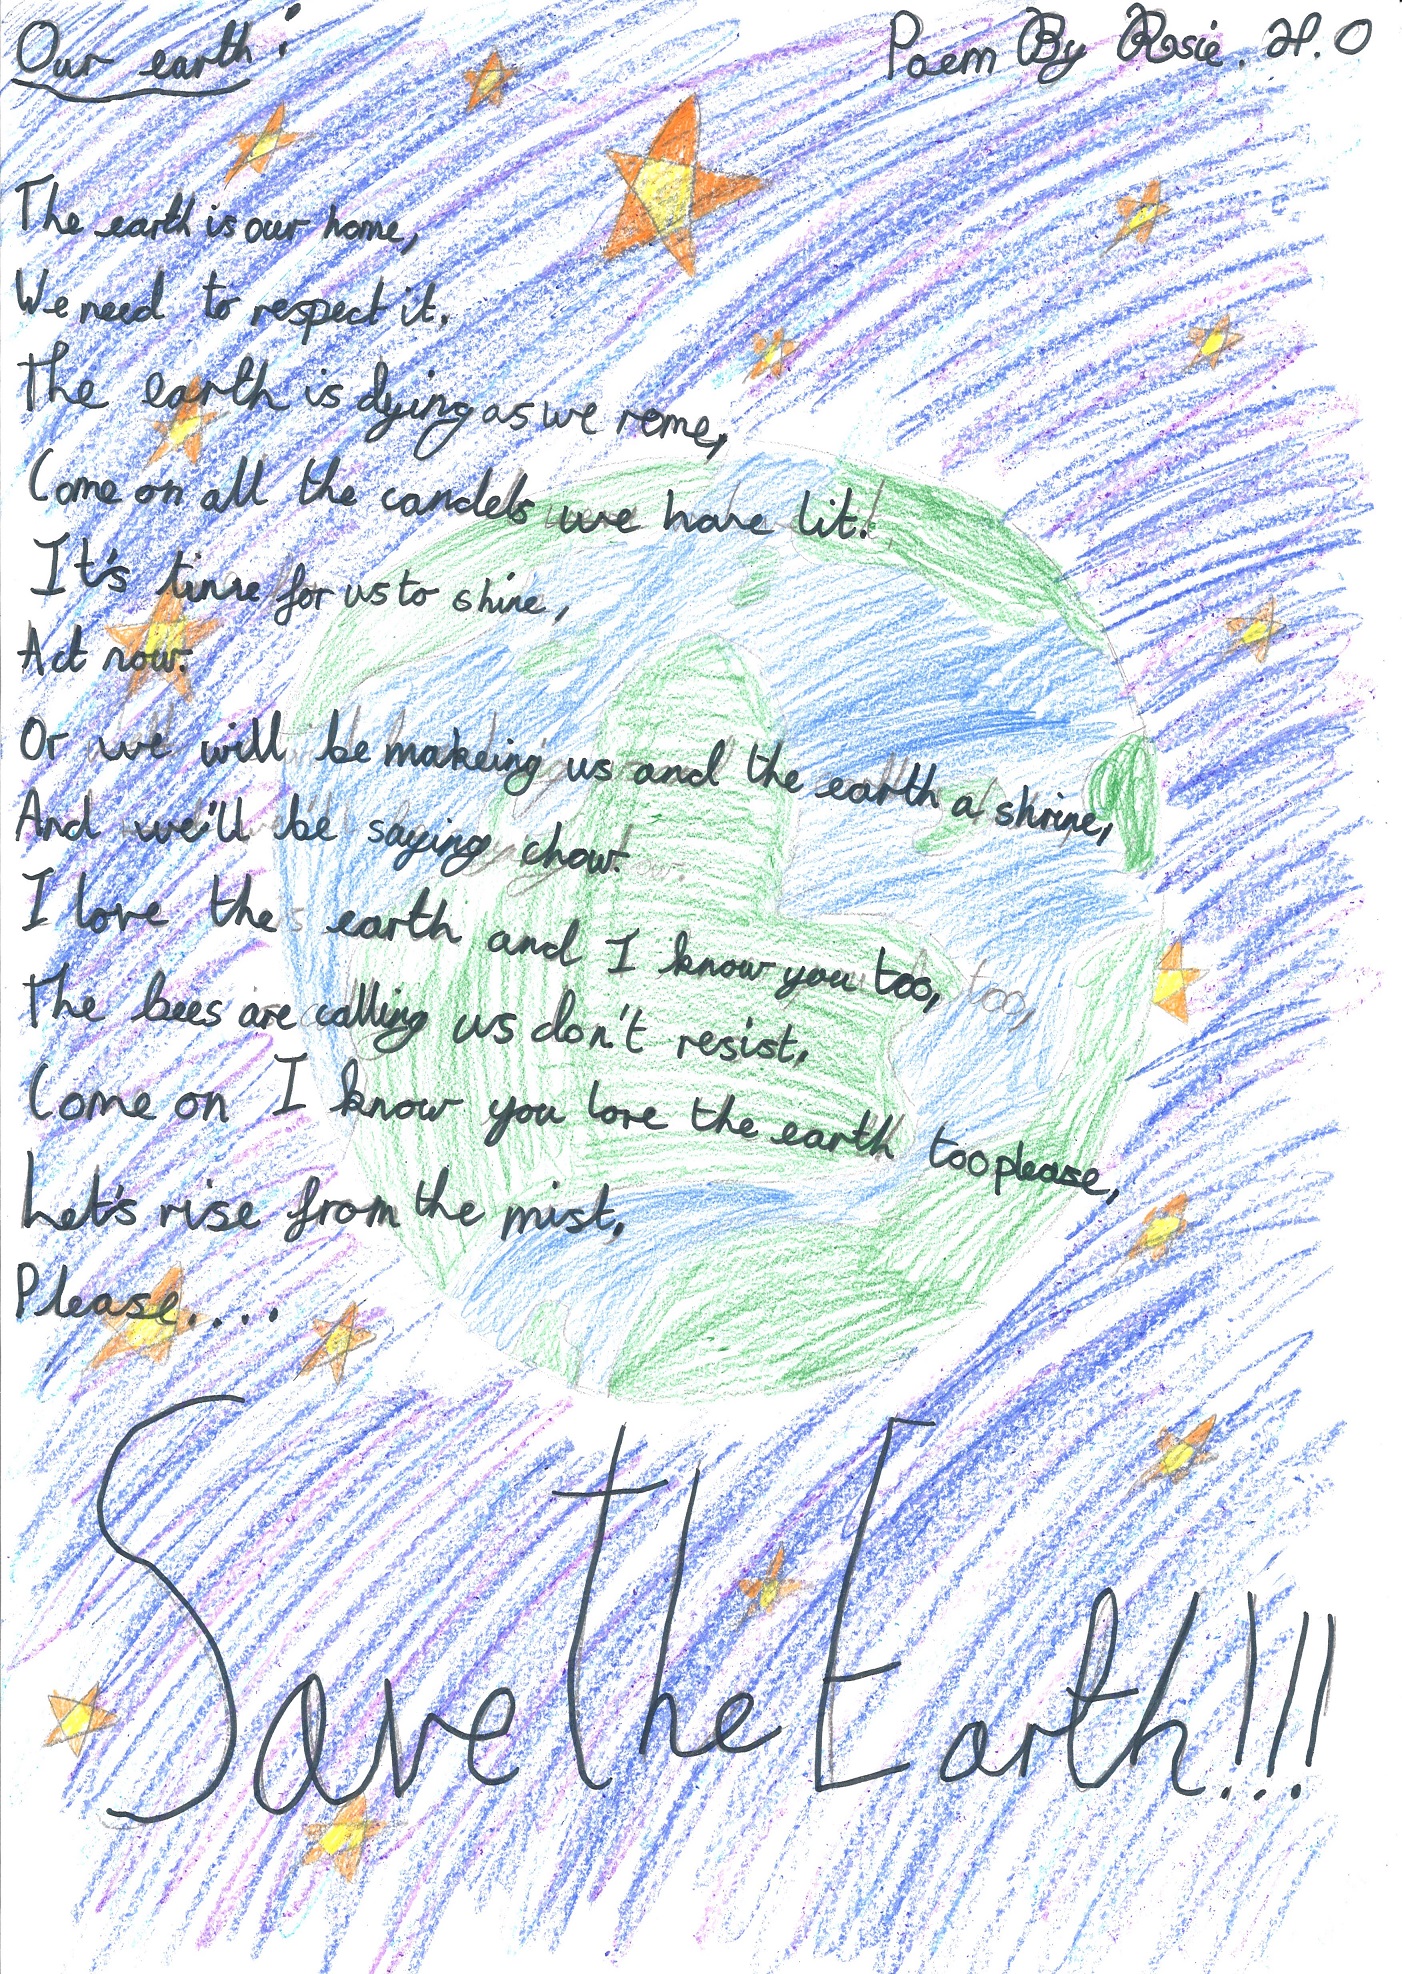 Our earth:
Poem By Rosie. H.O
The earth is our home,
We need to respect it.
The earth is dying as we rome,
Come on all the candels we have lit.
It's time for us to shine,
Act now.
Or we will be makeing us and the earth a shrine,
And we'll be saying chow.
I love the earth and I know you too,
The bees are calling us don't resist,
Come on I know you love the earth too please,
Let's rise from the mist,
Please....
Save the Earth!!!